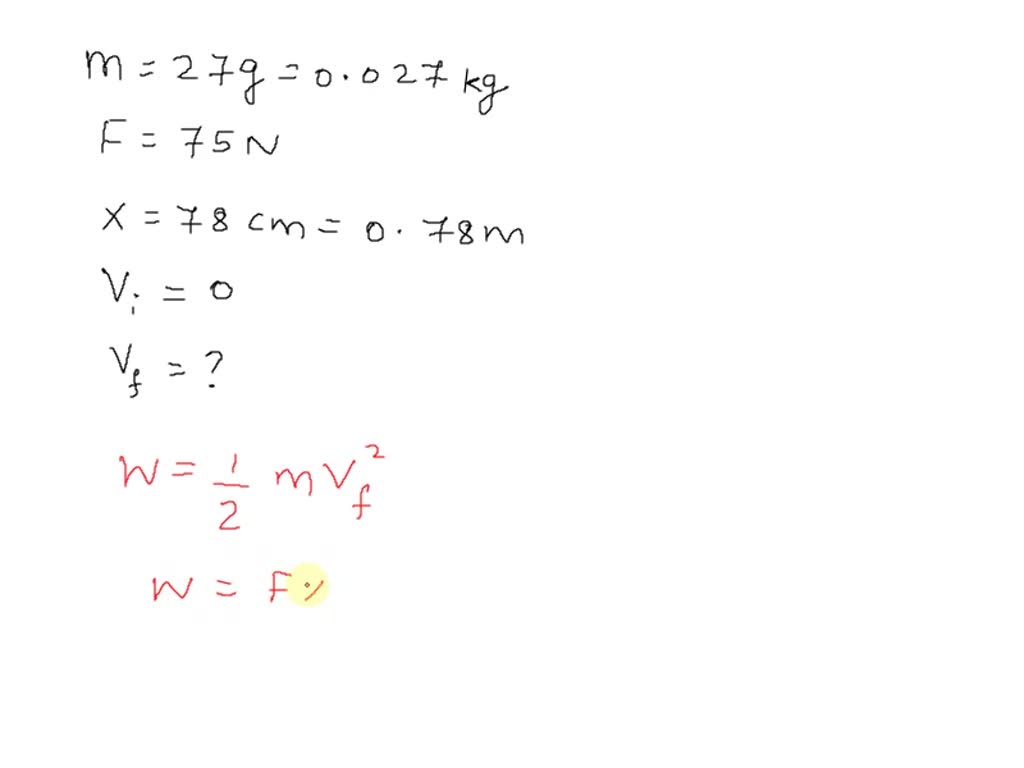 m = 27g = 0.027 kg
F = 75 N
x = 78 cm = 0.78 m
Vi = 0
Vf = ?
W = 1/2 m Vf²
W = Fx